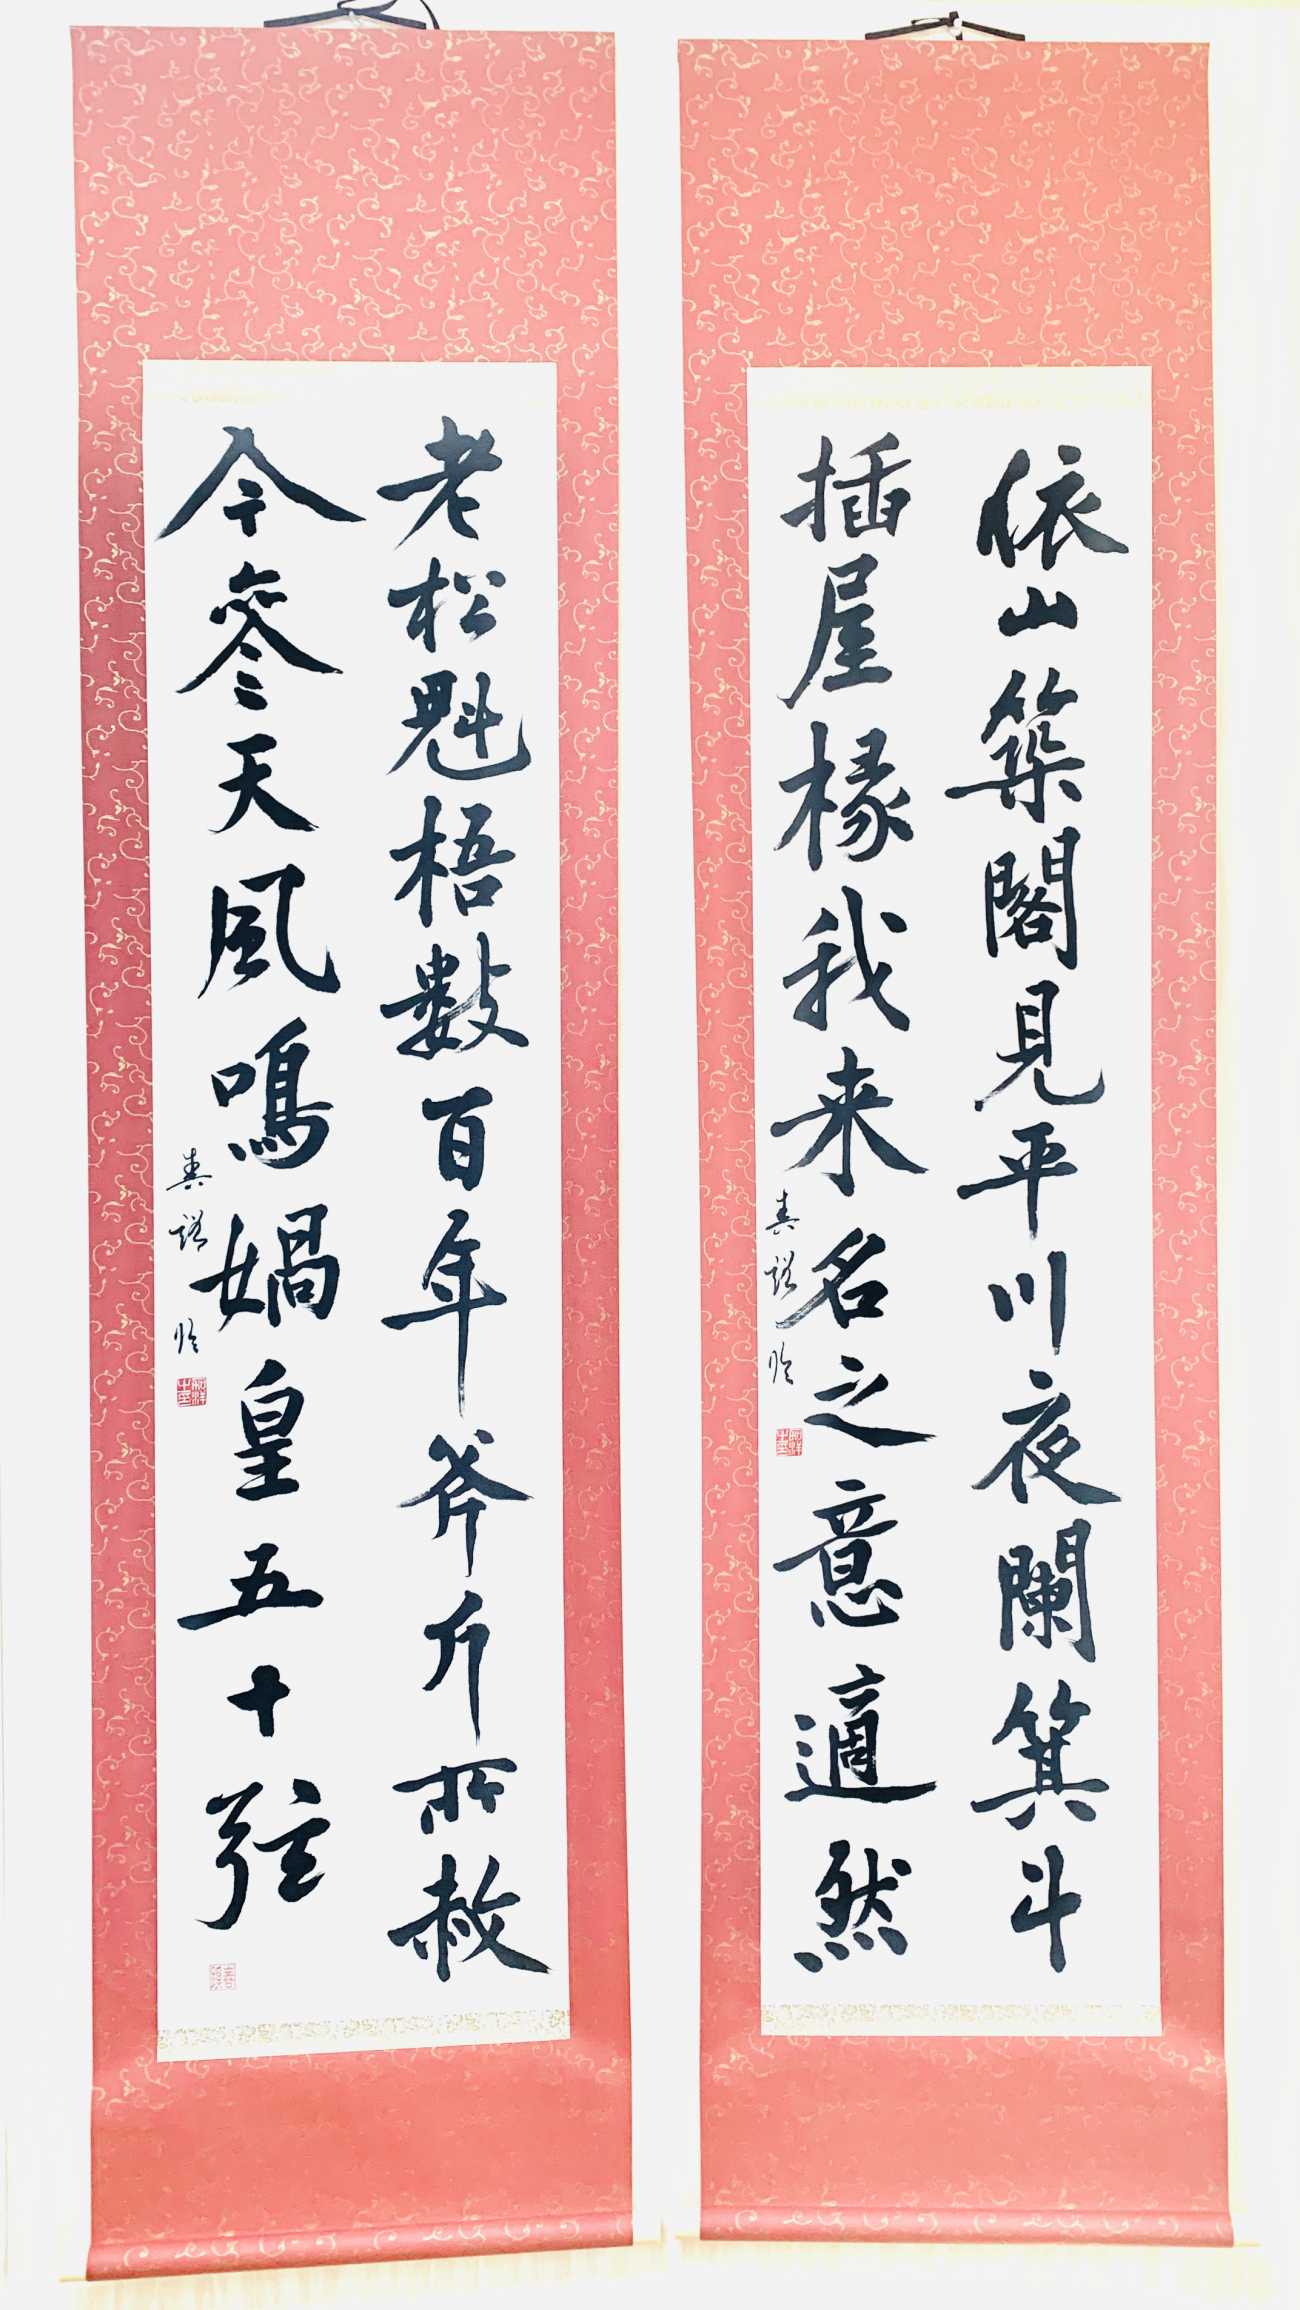 依山築閣見平川夜闌箕斗
插屋椽我来名之意適然
臨
老松魁梧數百年斧斤所赦
今參天風鳴媧皇五十弦
臨